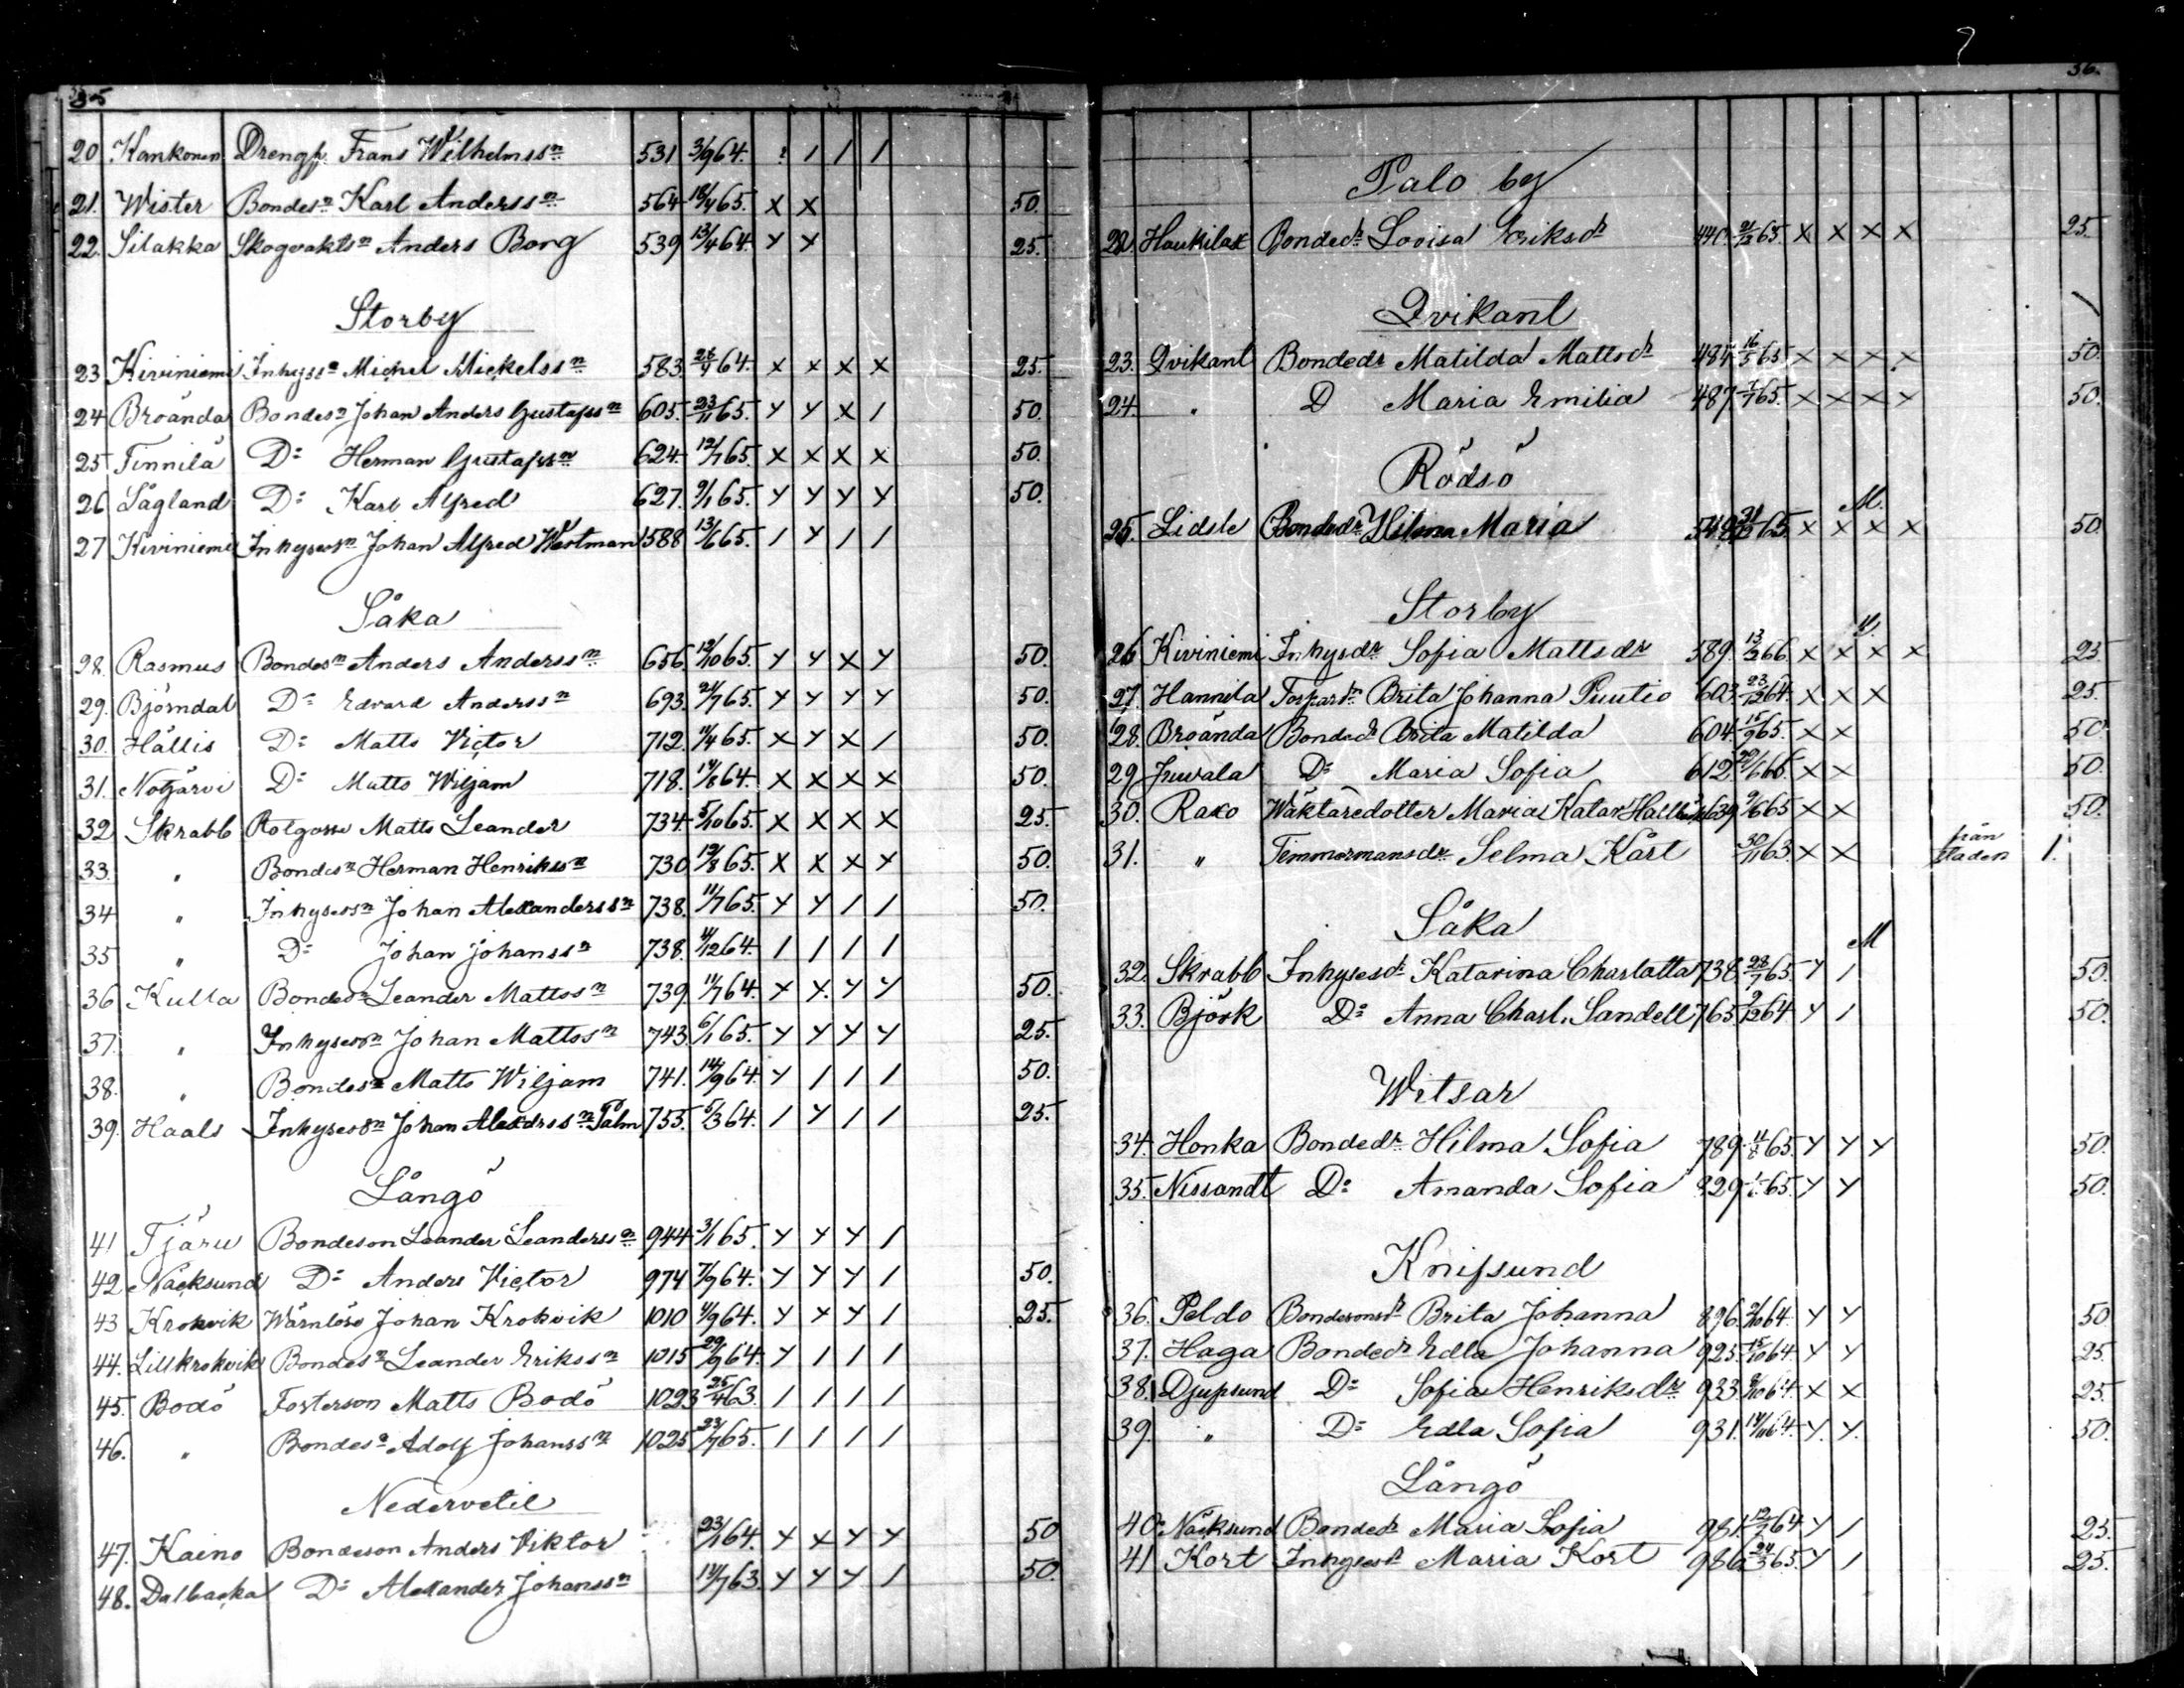 35
20 Kankonen Drengs. Frans Wilhelmssn 531 3/9 64. : / / /
21. Wister Bondesn Karl Anderssn 564 18/4 65. x x 50.
22. Silakka Skogvaktsn Anders Borg 539 13/4 64. y y 25.
Storby
23 Kiviniemi Inhyssn Michel Mickelssn 583. 64. x x x x 25.
24 Broända Bondesn Johan Anders Gustafssn 605. 23/11 65. y y x / 50.
25 Finnilä Do Herman Gustafssn 624. 12/7 65. x x x x 50.
26 Sågland Do Karl Alfred 627. 9/1 65. y y y y 50.
27 Kiviniemi Inhysessn Johan Alfred Westman 588 13/6 65. / y / /
Såka
28. Rasmus Bondesn Anders Anderssn 656. 12/10 65. y y x y 50.
29. Björndal Do Edvard Anderssn 693. 21/7 65. y y y y 50.
30. Hällis Do Matts Victor 712. 11/4 65. x y x / 50.
31. Notjärvi Do Matts Wiljam 718. 64. x x x x 50.
32 Skrabb Rotgosse Matts Leander 734. 5/10 65. x x x x 25.
33. " Bondesn Herman Henrikssn 730 12/8 65. x x x x 50.
34 " Inhysessn Johan Alexanderssn 738. 11/7 65. y y / / 50.
35 " Do Johan Johanssn 738. 4/12 64. / / / /
36 Kulla Bondesn Leander Mattssn 739. 11/7 64. x x. y y 50.
37. " Inhysessn Johan Mattssn 743. 6/1 65. y y y y 25.
38. " Bondesn Matts Wiljam 741. 14/9 64. y / / / 50.
39. Haals Inhysessn Johan Alexdrssn Palm 755. 5/3 64. / y / / 25.
Långö
41 Tjäru Bondeson Leander Leanderssn 944 3/1 65. y y y /
42 Näcksund Do Anders Victor 974 7/9 64. y y y / 50.
43 Krokvik Wärnlöse Johan Krokvik 1010 4/9 64. y y y / 25.
44. Lillkrokvik Bondesn Leander Erikssn 1015 29/9 64. y / / /
45. Bodö Fosterson Matts Bodö 1023 25/4 63. / / / /
46. " Bondesn Adolf Johanssn 1025 23/7 65. / / / /
Nedervetil
47. Kaino Bondeson Anders Viktor 23/1 64. y x y y 50
48. Dalbacka Do Alexander Johanssn 14/7 63. y y y / 50.
36.
Palo by
22. Haukilax Bondedr Lovisa Eriksdr 440. 65. x x x x 25.
Qvikant
23. Qvikant Bondedr Matilda Mattsdr 484 16/5 65 x x x x 50.
24. " D Maria Emilia 487. 65. x x x x 50.
Rödsö
M.
25. Lidsle Bondedr Hilma Maria 65. x x x x 50.
Storby
26 Kiviniemi Inhysdr Sofia Mattsdr 589. 13/3 66. x x x x 25
27. Hannila Torpardr Brita Johanna Puutio 603. 23/12 64. x x x 25.
28. Broända Bondedr Brita Matilda 604. 15/9 65. x x 50.
29 Juvala Do Maria Sofia 612. x x 50.
30. Rako Wäktaredotter Maria Katar 639 9/6 65 x x 50.
31. " Timmermansdr Selma Kårl 30/11 63. x x från staden 1.
Såka
M
32. Skrabb Inhysesdr Katarina Charlotta 738. 28/7 65. y / 50.
33. Björk Do Anna Charl. Sandell 765. 2/12 64 y / 50.
Witsar
34. Honka Bondedr Hilma Sofia 789. 65. y y y 50.
35. Nissandt Do Amanda Sofia 829. 65. y y 50.
Knifsund
36. Peldo Bondesonsdr Brita Johanna 896. 64. y y 50
37. Haga Bondedr Edla Johanna 925. 15/10 64. y y 25.
38. Djupsund Do Sofia Henriksdr 933 64. x x 25.
39. " Do Edla Sofia 931. 64. y. y. 50.
Långö
40. Näcksund Bondedr Maria Sofia 981. 12/7 64 y / 25.
41 Kort Inhysesdr Maria Kort 986. 24/3 65. y / 25.